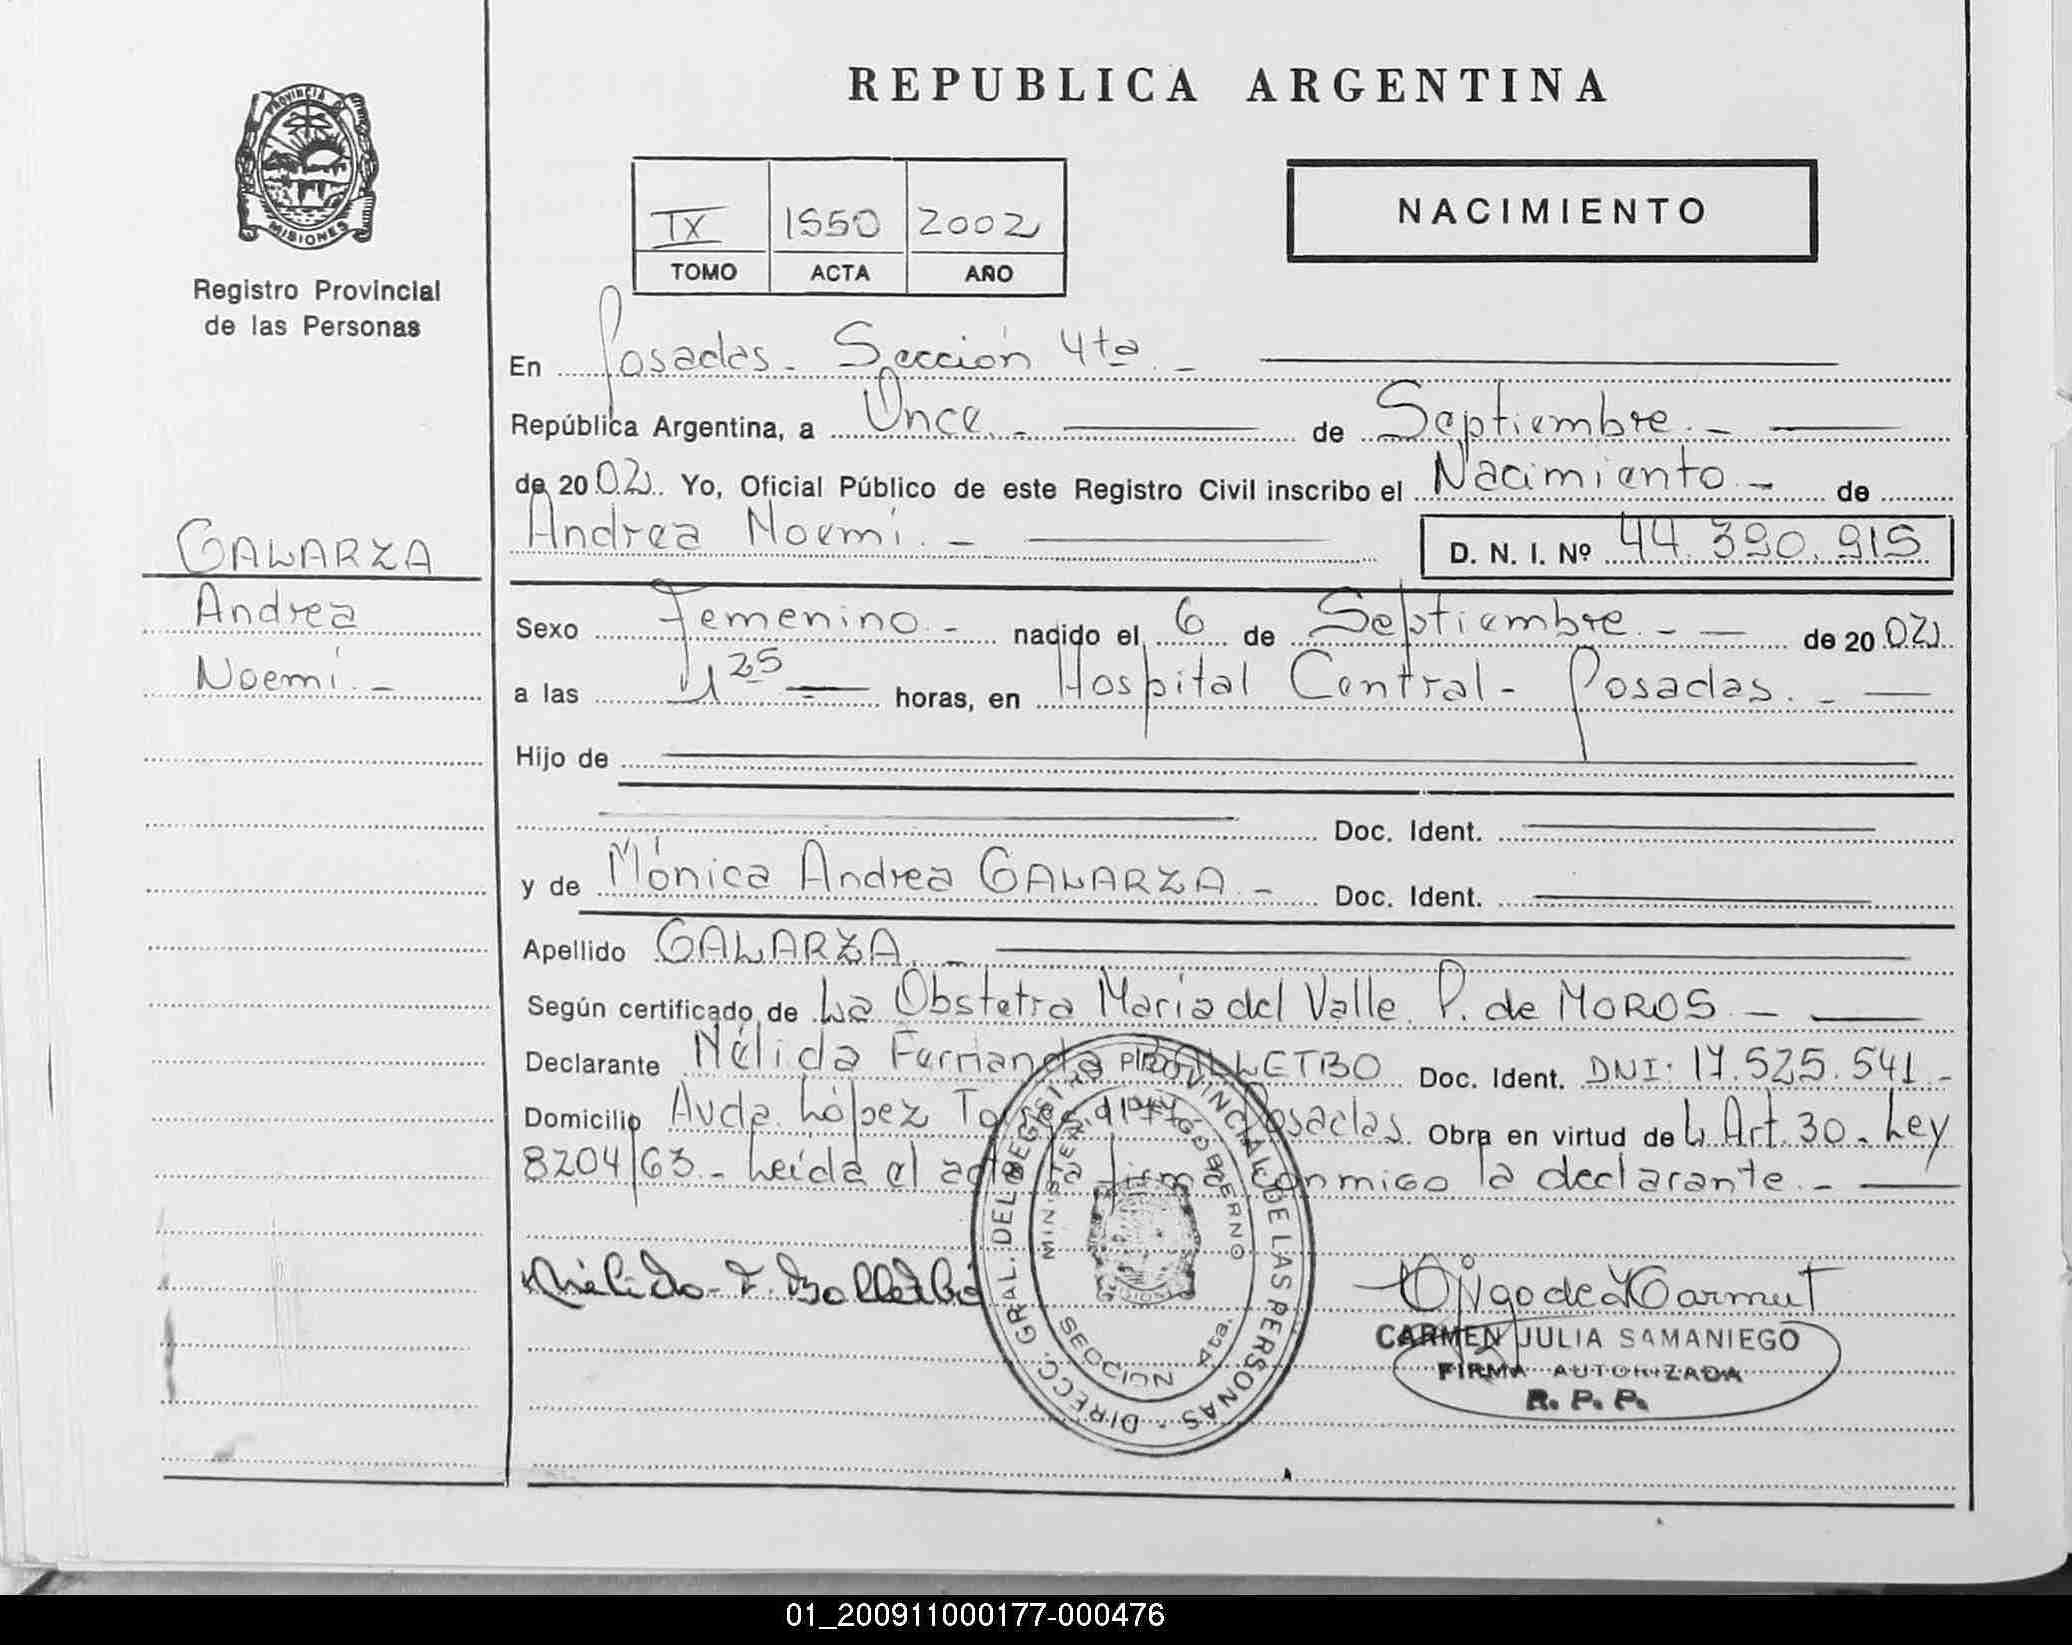 REPUBLICA ARGENTINA
PROVINCIA DE
MISIONES
Registro Provincial
de las Personas
NACIMIENTO
IX 1550 2002
TOMO ACTA AÑO
En Posadas - Sección 4ta. -
República Argentina, a Once. - de Septiembre. -
de 2002. Yo, Oficial Público de este Registro Civil inscribo el Nacimiento - de
Andrea Noemí. - D. N. I. Nº 44.390.915
GALARZA
Andrea
Noemí. -
Sexo Femenino. - nacido el 6 de Septiembre. - de 2002.
a las 1 25 horas, en Hospital Central - Posadas. -
Hijo de
Doc. Ident.
y de Mónica Andrea GALARZA. - Doc. Ident.
Apellido GALARZA. -
Según certificado de La Obstetra María del Valle P. de MOROS -
Declarante Nélida Fernanda BALLETBO Doc. Ident. DNI: 17.525.541 -
Domicilio Avda. López Posadas. Obra en virtud del Art. 30. Ley
8204/63. - Leída el acta la firma conmigo la declarante. -
Nélida F. Balletbó
DIRECC. GRAL. DEL REGISTRO PROVINCIAL DE LAS PERSONAS
MINISTERIO DE GOBIERNO
MISIONES
SECCION 4ta.
CARMEN JULIA SAMANIEGO
FIRMA AUTORIZADA
R. P. P.
01_200911000177-000476